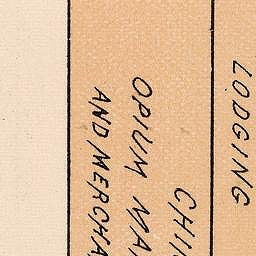 LODGING
CHIN
OPIUM MAN
AND MERCHA